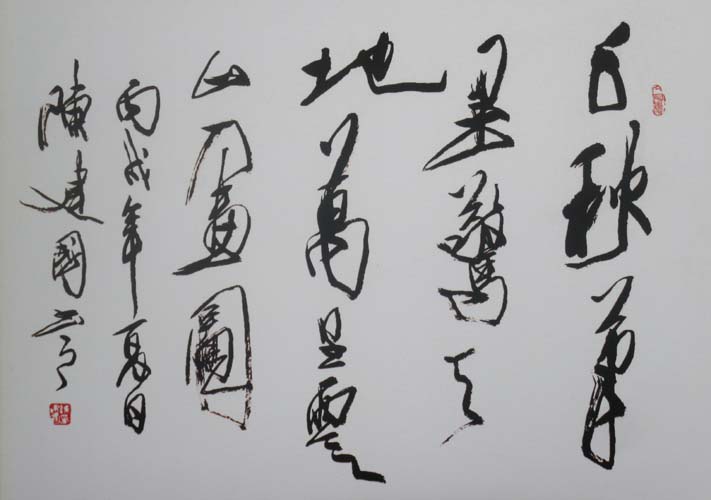 千秋筆
墨驚天
地萬里雲
山入畫圖
丙戌年夏日
陳建國